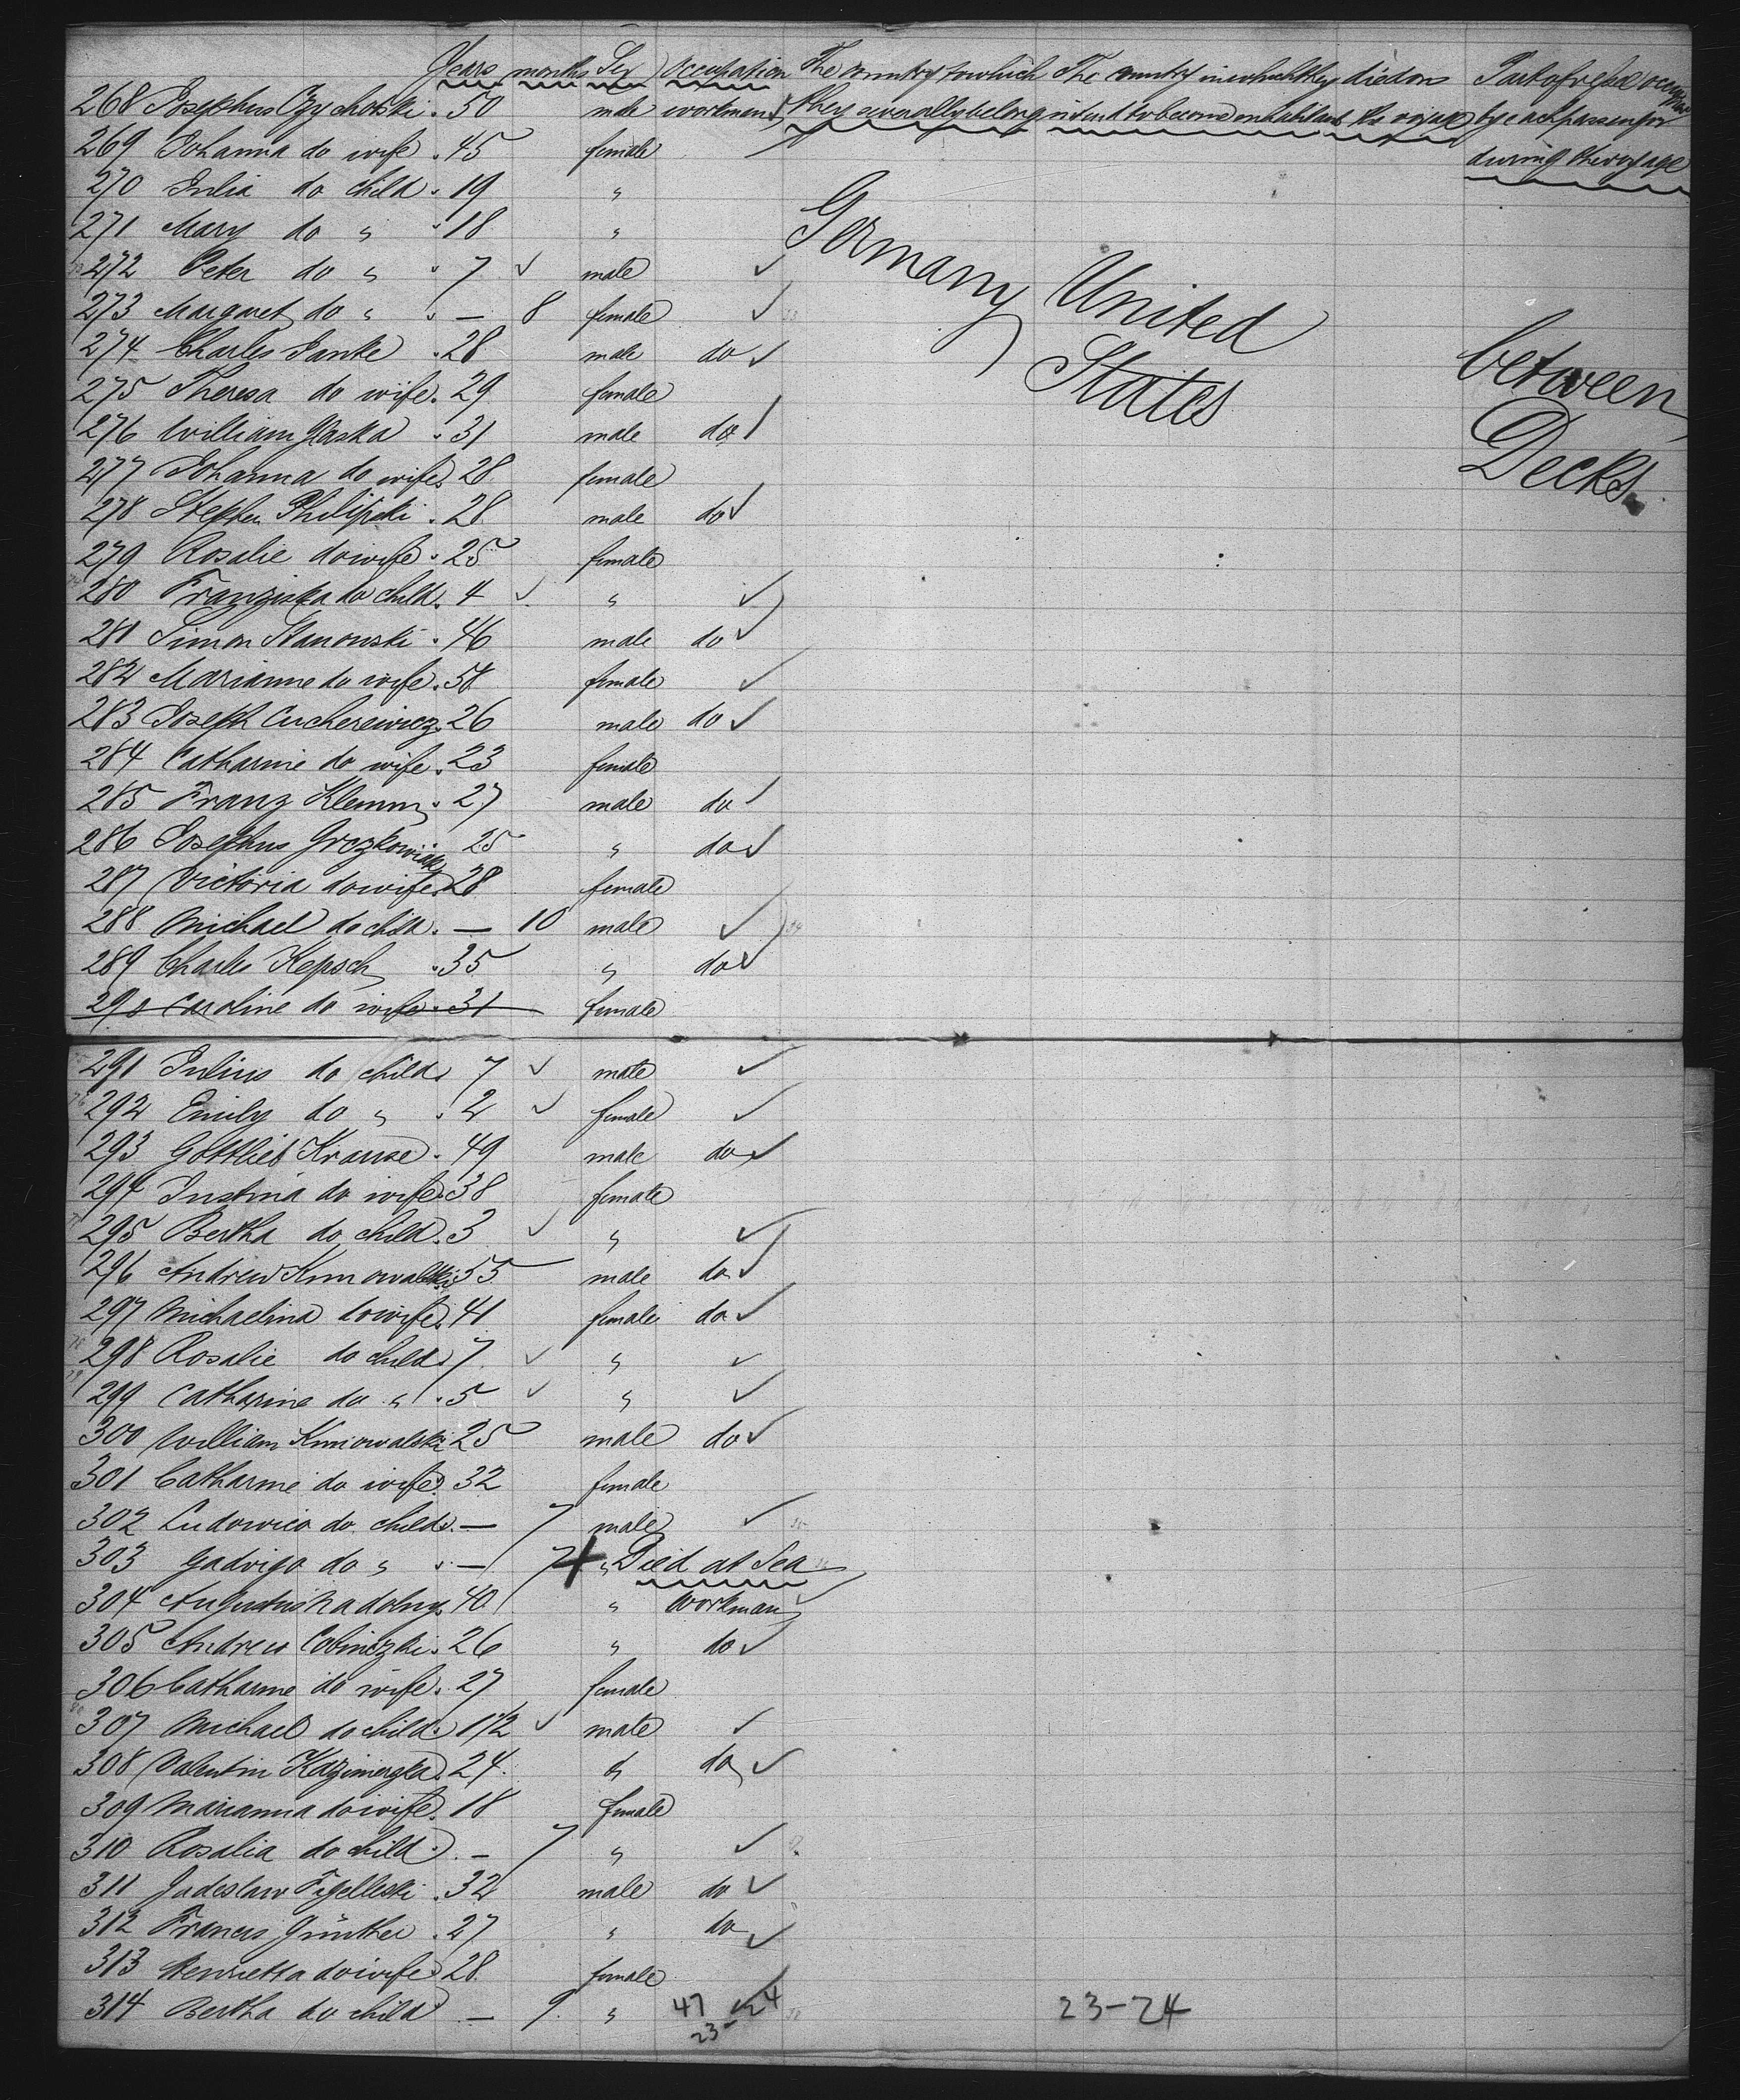 Years months Sex Occupation The country to which The country in which they died on Part of vessel occupied
268 Josephus Czychotski . 50 male workman they severally belong intend to become inhabitants the voyage by each passenger
269 Johanna do wife . 45 female during the voyage
270 Julia do child . 19 "
271 Mary do " . 18 "
272 Peter do " . 7 ✓ male ✓
273 Margaret do " . — 8 female ✓
Germany United States
between Decks.
274 Charles Janke . 28 male do ✓
275 Theresa do wife . 29 female
276 William Glaska . 31 male do
277 Johanna do wife . 28 female
278 Stephen Philipski . 28 male do ✓
279 Rosalie do wife . 25 female
280 Franziska do child . 4 ✓ " ✓
281 Simon Stanowski . 46 male do ✓
282 Marianne do wife . 58 female ✓
283 Joseph Cucherewicz . 26 male do ✓
284 Catharine do wife . 23 female
285 Franz Klemm . 27 male do ✓
286 Josephus Grczkowiak 25 " do ✓
287 Victoria do wife . 28 female
288 Michael do child . — 10 male ✓
289 Charles Kepsch . 35 " do ✓
290 Caroline do wife . 31 female
291 Julius do child . 7 ✓ male ✓
292 Emily do " . 2 ✓ female ✓
293 Gottlieb Krause . 49 male do ✓
294 Justina do wife . 38 female
295 Bertha do child . 3 ✓ " ✓
296 Andrew Kmowalski 55 male do ✓
297 Michaelina do wife . 41 female do ✓
298 Rosalie do child . 7 ✓ " ✓
299 Catharine do " . 5 ✓ " ✓
300 William Kmiowalski 25 male do ✓
301 Catharine do wife . 32 female
302 Ludowica do child . — 7 male ✓
303 Gadviga do " . — 7 + " Died at Sea
304 Augustus Nadolny . 40 " workman ✓
305 Andrew Cobinczki . 26 " do ✓
306 Catharine do wife . 27 female
307 Michael do child . 1 1/2 ✓ male ✓
308 Valentin Kazimerzka . 24 . " do ✓
309 Marianna do wife . 18 female
310 Rosalia do child . — 7 " ✓
311 Jadeslaw Figelleski . 32 male do ✓
312 Francis Günther . 27 " do ✓
313 Henrietta do wife . 28 female
314 Bertha do child — 9 . " 47 ✓ 23-24
23-24